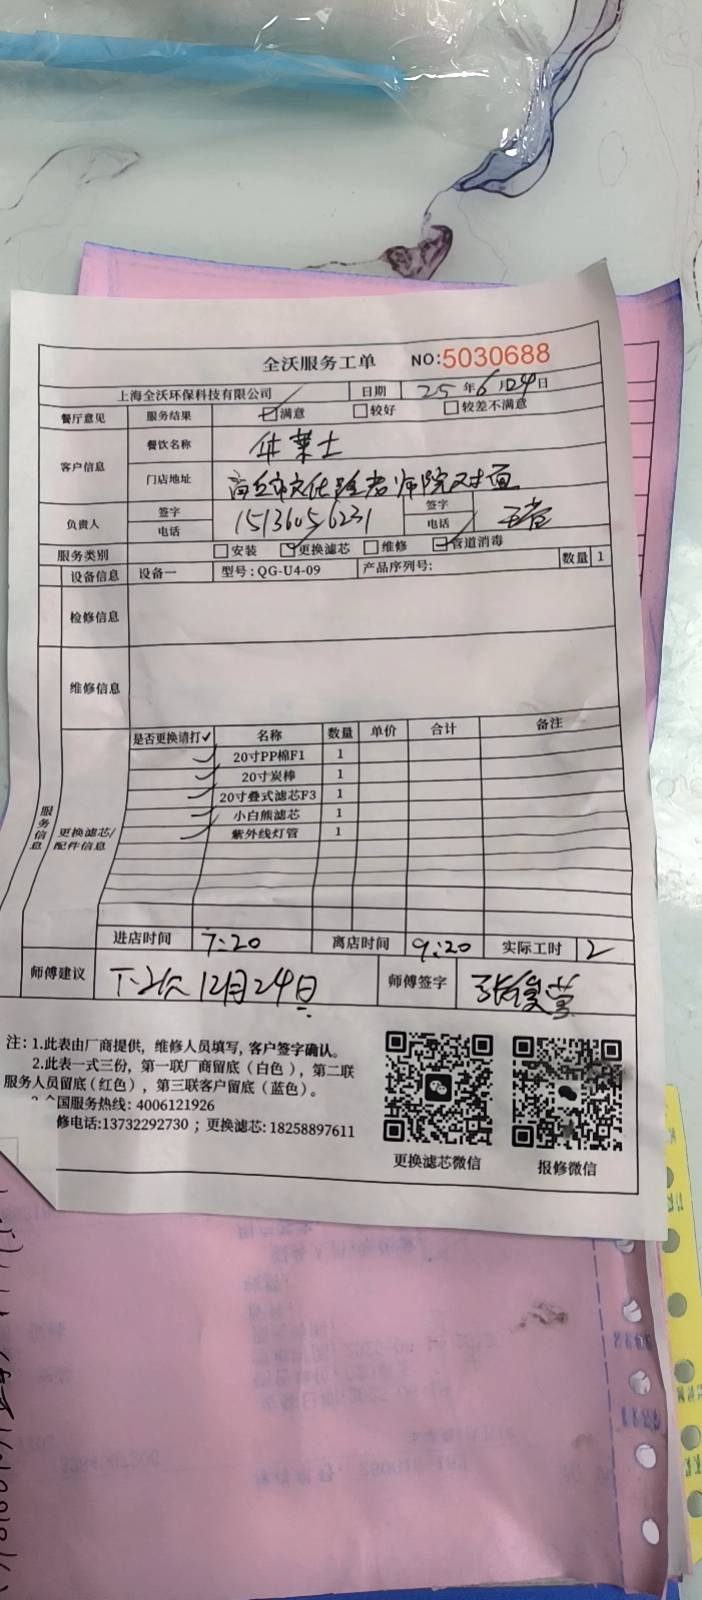 全沃服务工单 NO:5030688
上海全沃环保科技有限公司 日期 25年6月24日
餐厅意见 服务结果 ☑满意 □较好 □较差不满意
客户信息 餐饮名称 华莱士
门店地址 商丘市文化路老师院对面
负责人 签字 签字
电话 15136056231 电话
服务类别 □安装 ☑更换滤芯 □维修 ☑管道消毒
设备信息 设备一 型号:QG-U4-09 产品序列号: 数量 1
检修信息
维修信息
服务信息
更换滤芯/配件信息
是否更换请打✓ 名称 数量 单价 合计 备注
✓ 20寸PP棉F1 1
✓ 20寸炭棒 1
✓ 20寸叠式滤芯F3 1
✓ 小白熊滤芯 1
✓ 紫外线灯管 1
进店时间 7:20 离店时间 9:20 实际工时 2
师傅建议 下次12月24日 师傅签字
注:1.此表由厂商提供,维修人员填写,客户签字确认。
2.此表一式三份,第一联厂商留底(白色),第二联
服务人员留底(红色),第三联客户留底(蓝色)。
国服务热线:4006121926
修电话:13732292730;更换滤芯:18258897611
更换滤芯微信 报修微信